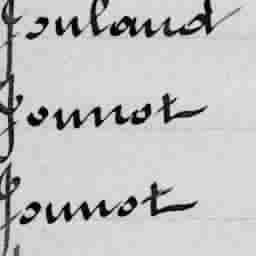 Joulaud
Jounot
Jounot